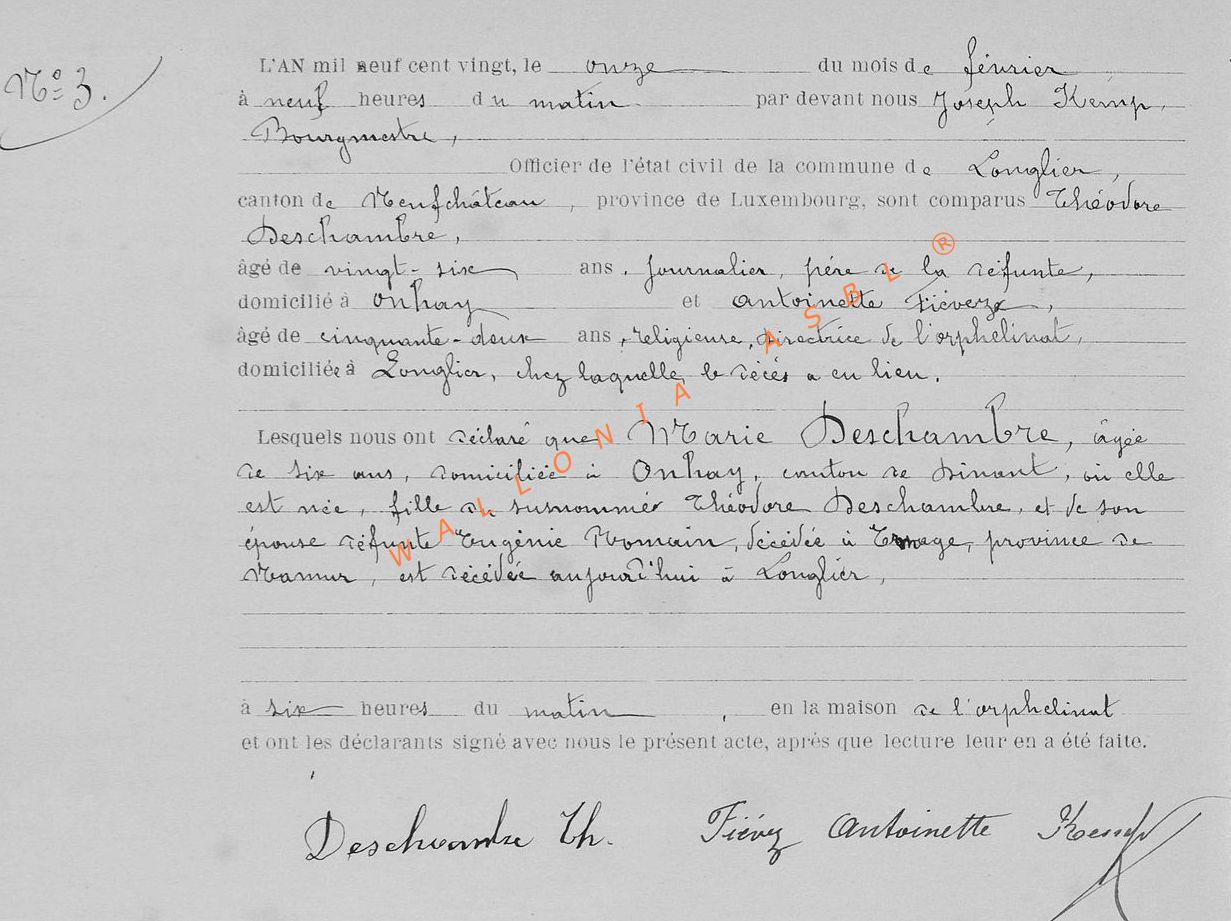 N° 3.
L'AN mil neuf cent vingt, le onze du mois de février
à neuf heures du matin par devant nous Joseph Kemp,
Bourgmestre,
Officier de l'état civil de la commune de Longlier,
canton de Neufchâteau, province de Luxembourg, sont comparus Théodore
Deschambre,
âgé de vingt-six ans, journalier, père de la défunte,
domicilié à Onhay et Antoinette Fiévez,
âgé de cinquante-deux ans, religieuse, directrice de l'orphelinat,
domiciliée à Longlier, chez laquelle le décès a eu lieu.
Lesquels nous ont déclaré que Marie Deschambre, âgée
de six ans, domiciliée à Onhay, canton de Dinant, où elle
est née, fille du susnommé Théodore Deschambre, et de son
épouse défunte Eugénie Romain, décédée à province de
Namur, est décédée aujourd'hui à Longlier,
à six heures du matin, en la maison de l'orphelinat
et ont les déclarants signé avec nous le présent acte, après que lecture leur en a été faite.
Deschambre Th. Fiévez Antoinette Kemp
WALLONIA ASBL ®